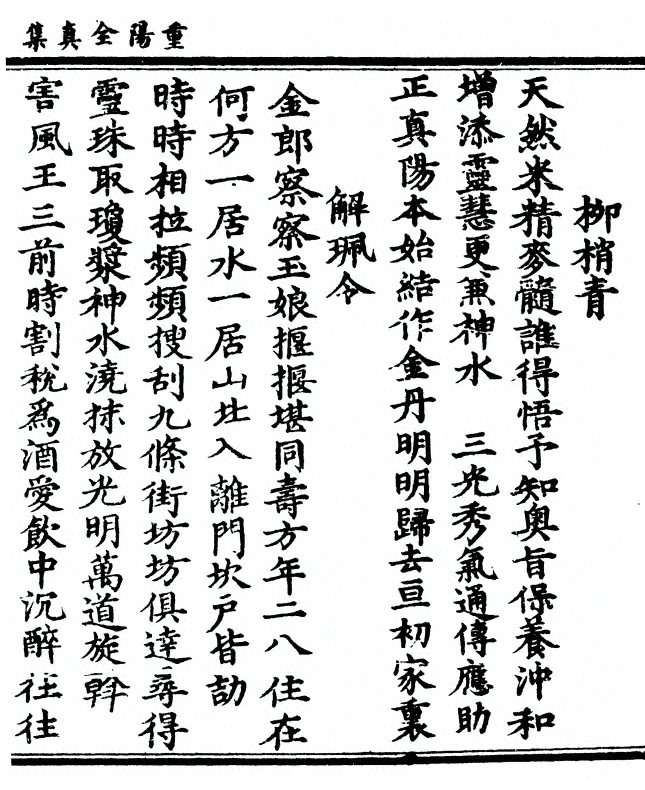 重陽全真集
柳梢青
天然米精麥髓誰得悟予知奥旨保養沖和
增添靈慧更兼神水 三光秀氣通傳應助
正真陽本始結作金丹明明歸去亘初家裏
解珮令
金郎察察玉娘揠揠堪同壽方年二八住在
何方一居水一居山北入離門坎戶皆劼
時時相拉頻頻搜刮九條街坊坊俱達尋得
靈珠取瓊漿神水澆抹放光明萬道旋斡
害風王三前時割稅爲酒愛飲中沉醉往往